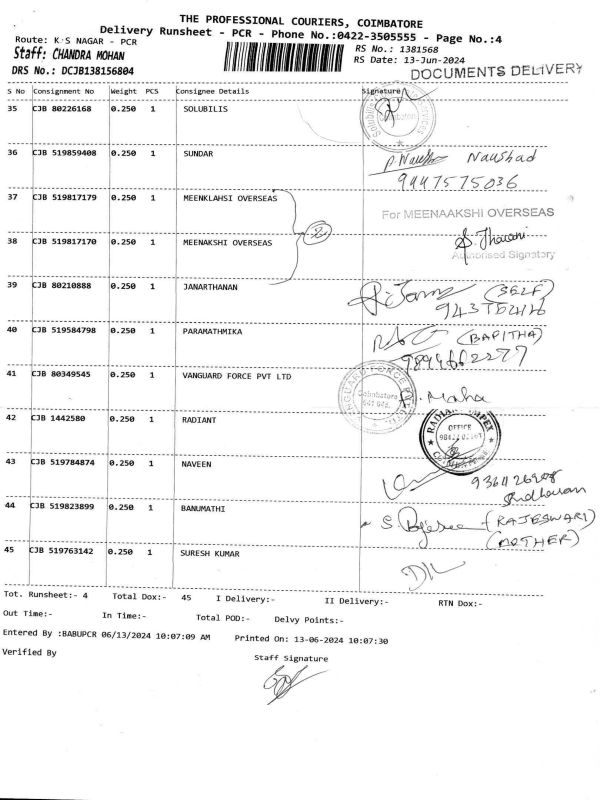 THE PROFESSIONAL COURIERS, COIMBATORE
Delivery Runsheet - PCR - Phone No.:0422-3505555 - Page No.:4
Route: K S NAGAR - PCR
RS No.: 1381568
Staff: CHANDRA MOHAN
RS Date: 13-Jun-2024
DRS No.: DCJB138156804
DOCUMENTS DELIVERY
S No Consignment No Weight PCS Consignee Details Signature
35 CJB 80226168 0.250 1 SOLUBILIS
36 CJB 519859408 0.250 1 SUNDAR
Naushad
9447575036
37 CJB 519817179 0.250 1 MEENKLAHSI OVERSEAS
For MEENAAKSHI OVERSEAS
2
38 CJB 519817170 0.250 1 MEENAKSHI OVERSEAS
S. Tharani
Authorised Signatory
39 CJB 80210888 0.250 1 JANARTHANAN
(SELF)
40 CJB 519584798 0.250 1 PARAMATHMIKA
(BABITHA)
9894662277
41 CJB 80349545 0.250 1 VANGUARD FORCE PVT LTD
Coimbatore
Maha
42 CJB 1442580 0.250 1 RADIANT
OFFICE
43 CJB 519784874 0.250 1 NAVEEN
44 CJB 519823899 0.250 1 BANUMATHI
(RAJESWARI)
(MOTHER)
45 CJB 519763142 0.250 1 SURESH KUMAR
Tot. Runsheet:- 4 Total Dox:- 45 I Delivery:- II Delivery:- RTN Dox:-
Out Time:- In Time:- Total POD:- Delvy Points:-
Entered By :BABUPCR 06/13/2024 10:07:09 AM Printed On: 13-06-2024 10:07:30
Verified By
Staff Signature